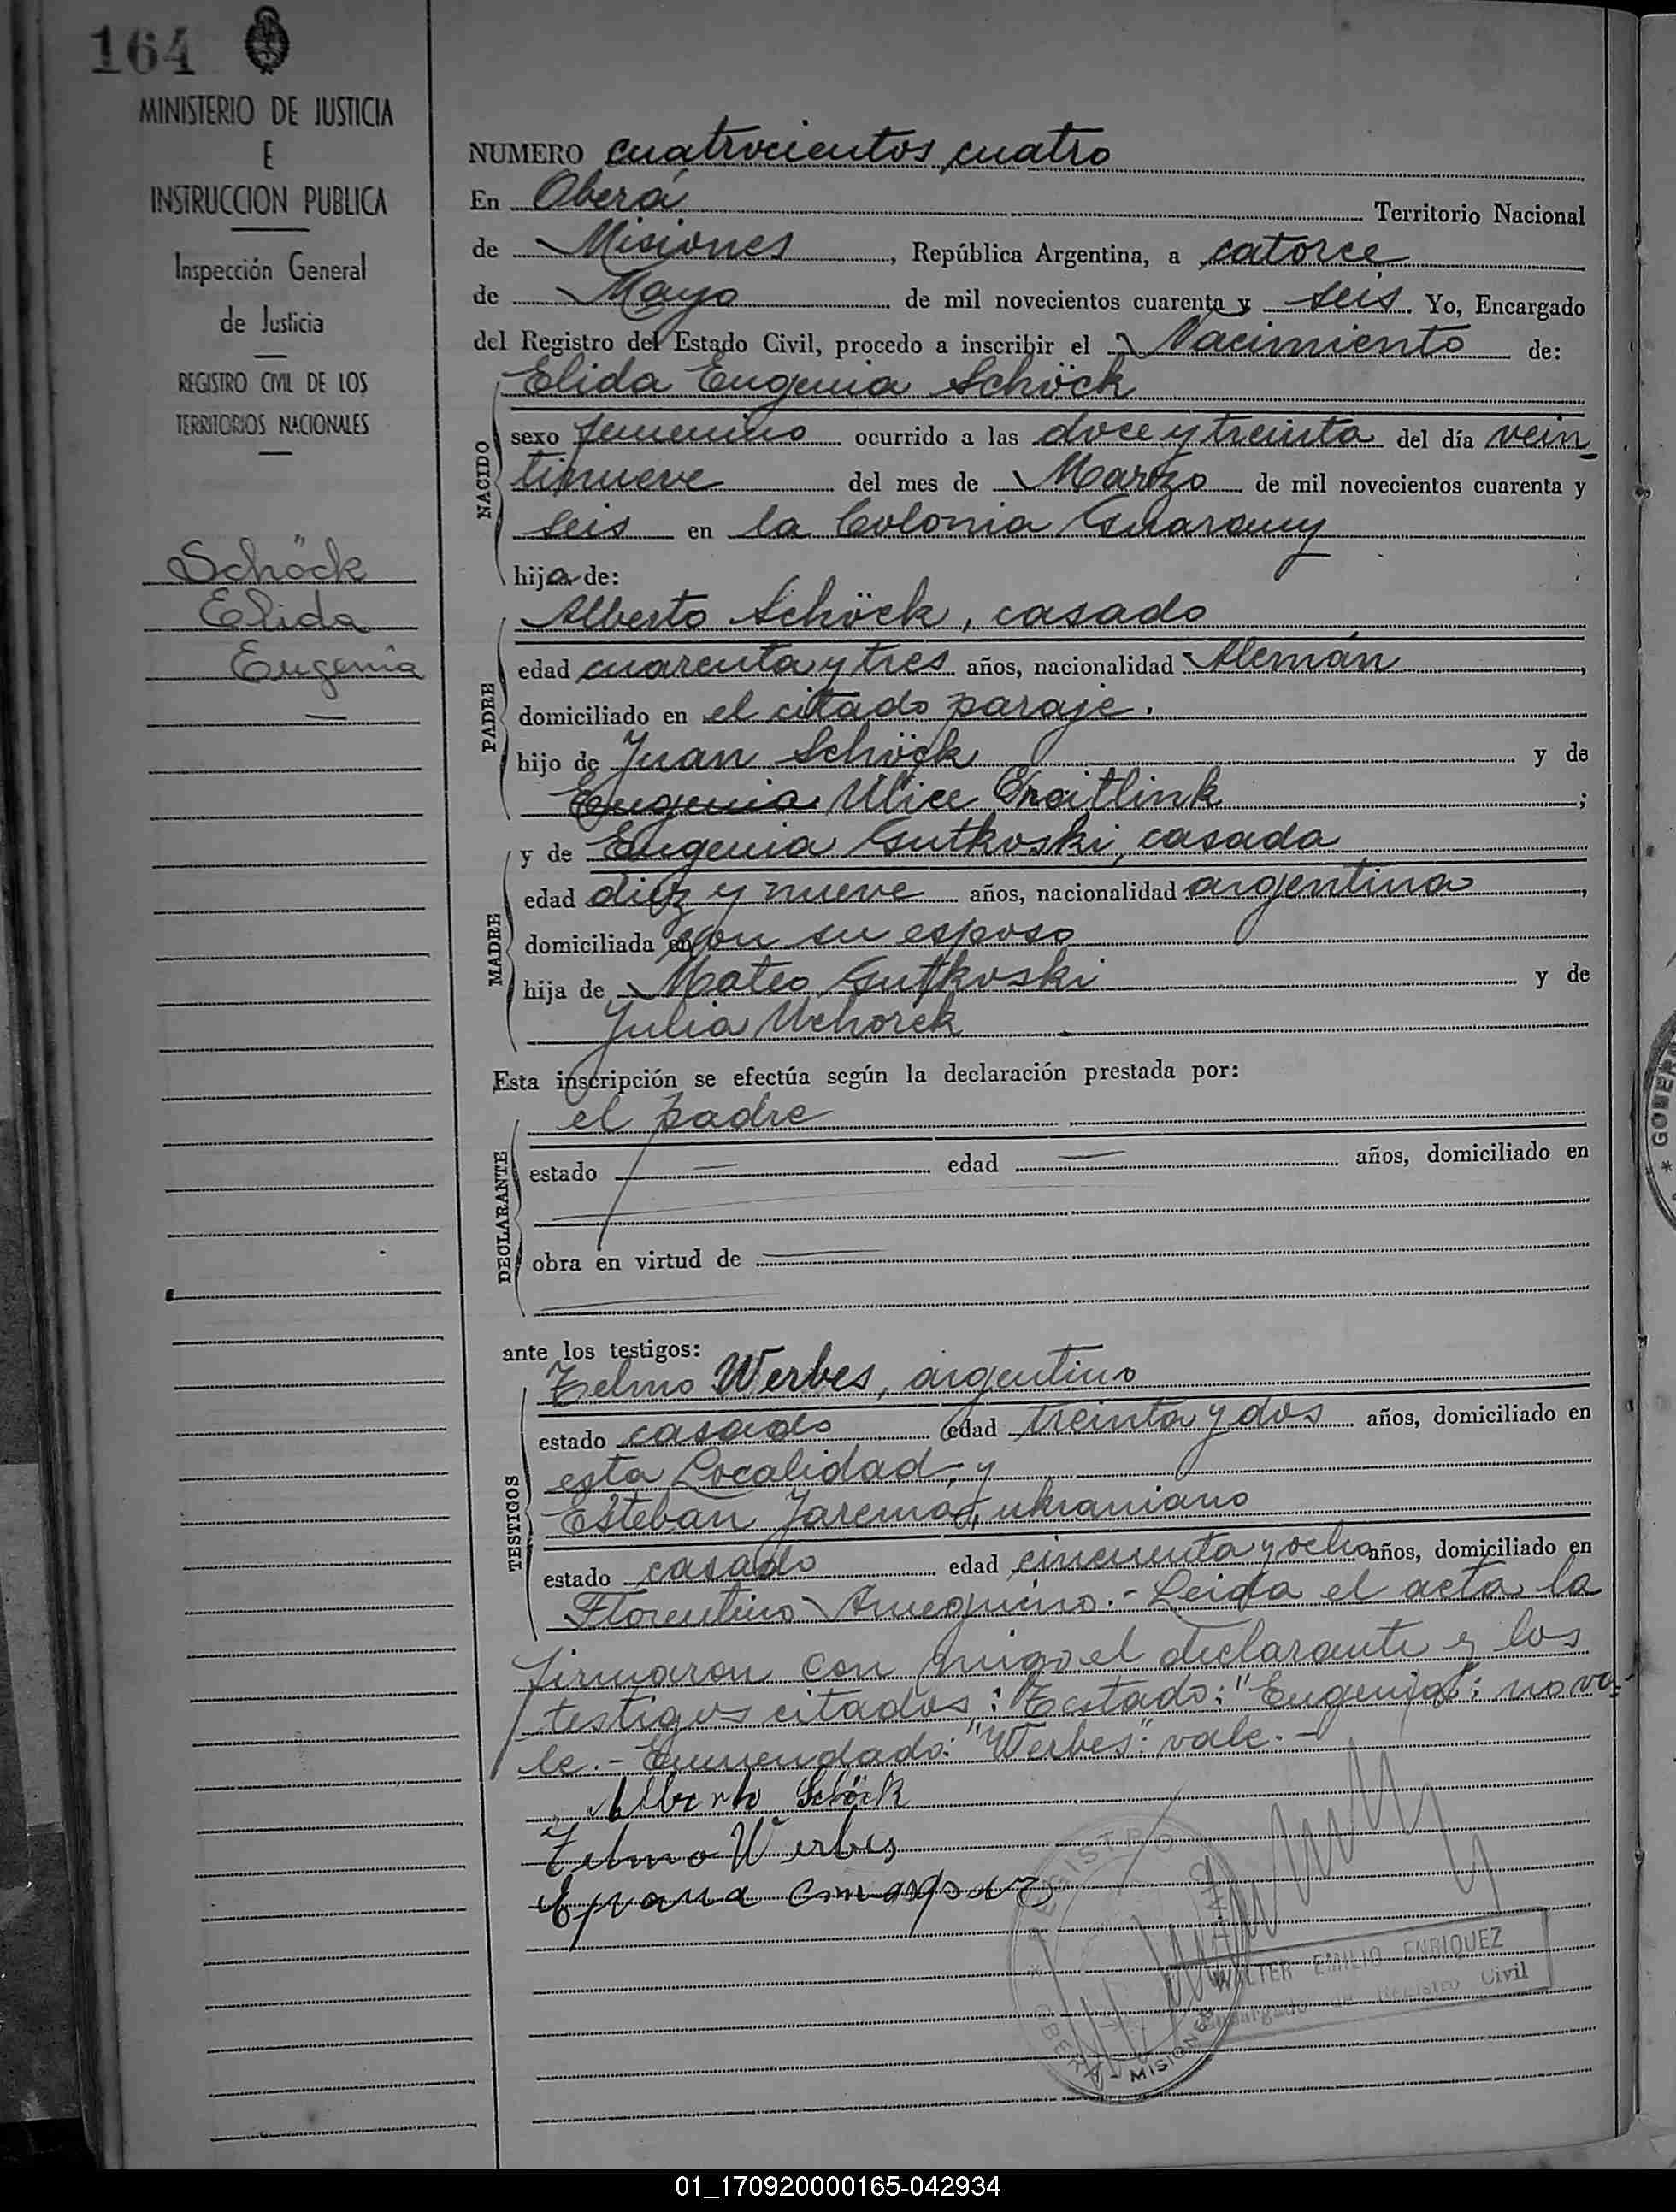 164
MINISTERIO DE JUSTICIA
E
INSTRUCCION PUBLICA
Inspección General
de Justicia
REGISTRO CIVIL DE LOS
TERRITORIOS NACIONALES
Schöck
Elida
Eugenia
NUMERO cuatrocientos cuatro
En Oberá Territorio Nacional
de Misiones, República Argentina, a catorce
de Mayo de mil novecientos cuarenta y seis. Yo, Encargado
del Registro del Estado Civil, procedo a inscribir el Nacimiento de:
Elida Eugenia Schöck
NACIDO
sexo femenino ocurrido a las doce y treinta del día vein
tinueve del mes de Marzo de mil novecientos cuarenta y
seis en la Colonia Guarany
hija de:
PADRE
Alberto Schöck, casado
edad cuarenta y tres años, nacionalidad Alemán,
domiciliado en el citado paraje.
hijo de Juan Schöck y de
Eugenia Ulice;
MADRE
y de Eugenia Gutkoski, casada
edad diez y nueve años, nacionalidad argentina,
domiciliada con su esposo
hija de Mateo Gutkoski y de
Julia Uchorek
Esta inscripción se efectúa según la declaración prestada por:
DECLARANTE
el padre
estado — edad — años, domiciliado en
obra en virtud de
ante los testigos:
TESTIGOS
Telmo Werbes, argentino
estado casado edad treinta y dos años, domiciliado en
esta Localidad; y
Esteban Jarema, ukraniano
estado casado edad cincuenta y ocho años, domiciliado en
Florentino Ameghino.- Leida el acta la
firmaron con migo el declarante y los
testigos citados: Testado: "Eugenia": no va-
le.- Enmendado: "Werbes": vale.-
Alberto Schöck
Telmo Werbes
REGISTRO CIVIL
OBERA - MISIONES
WALTER EMILIO ENRIQUEZ
Encargado de Registro Civil
* GOBER
01_170920000165-042934